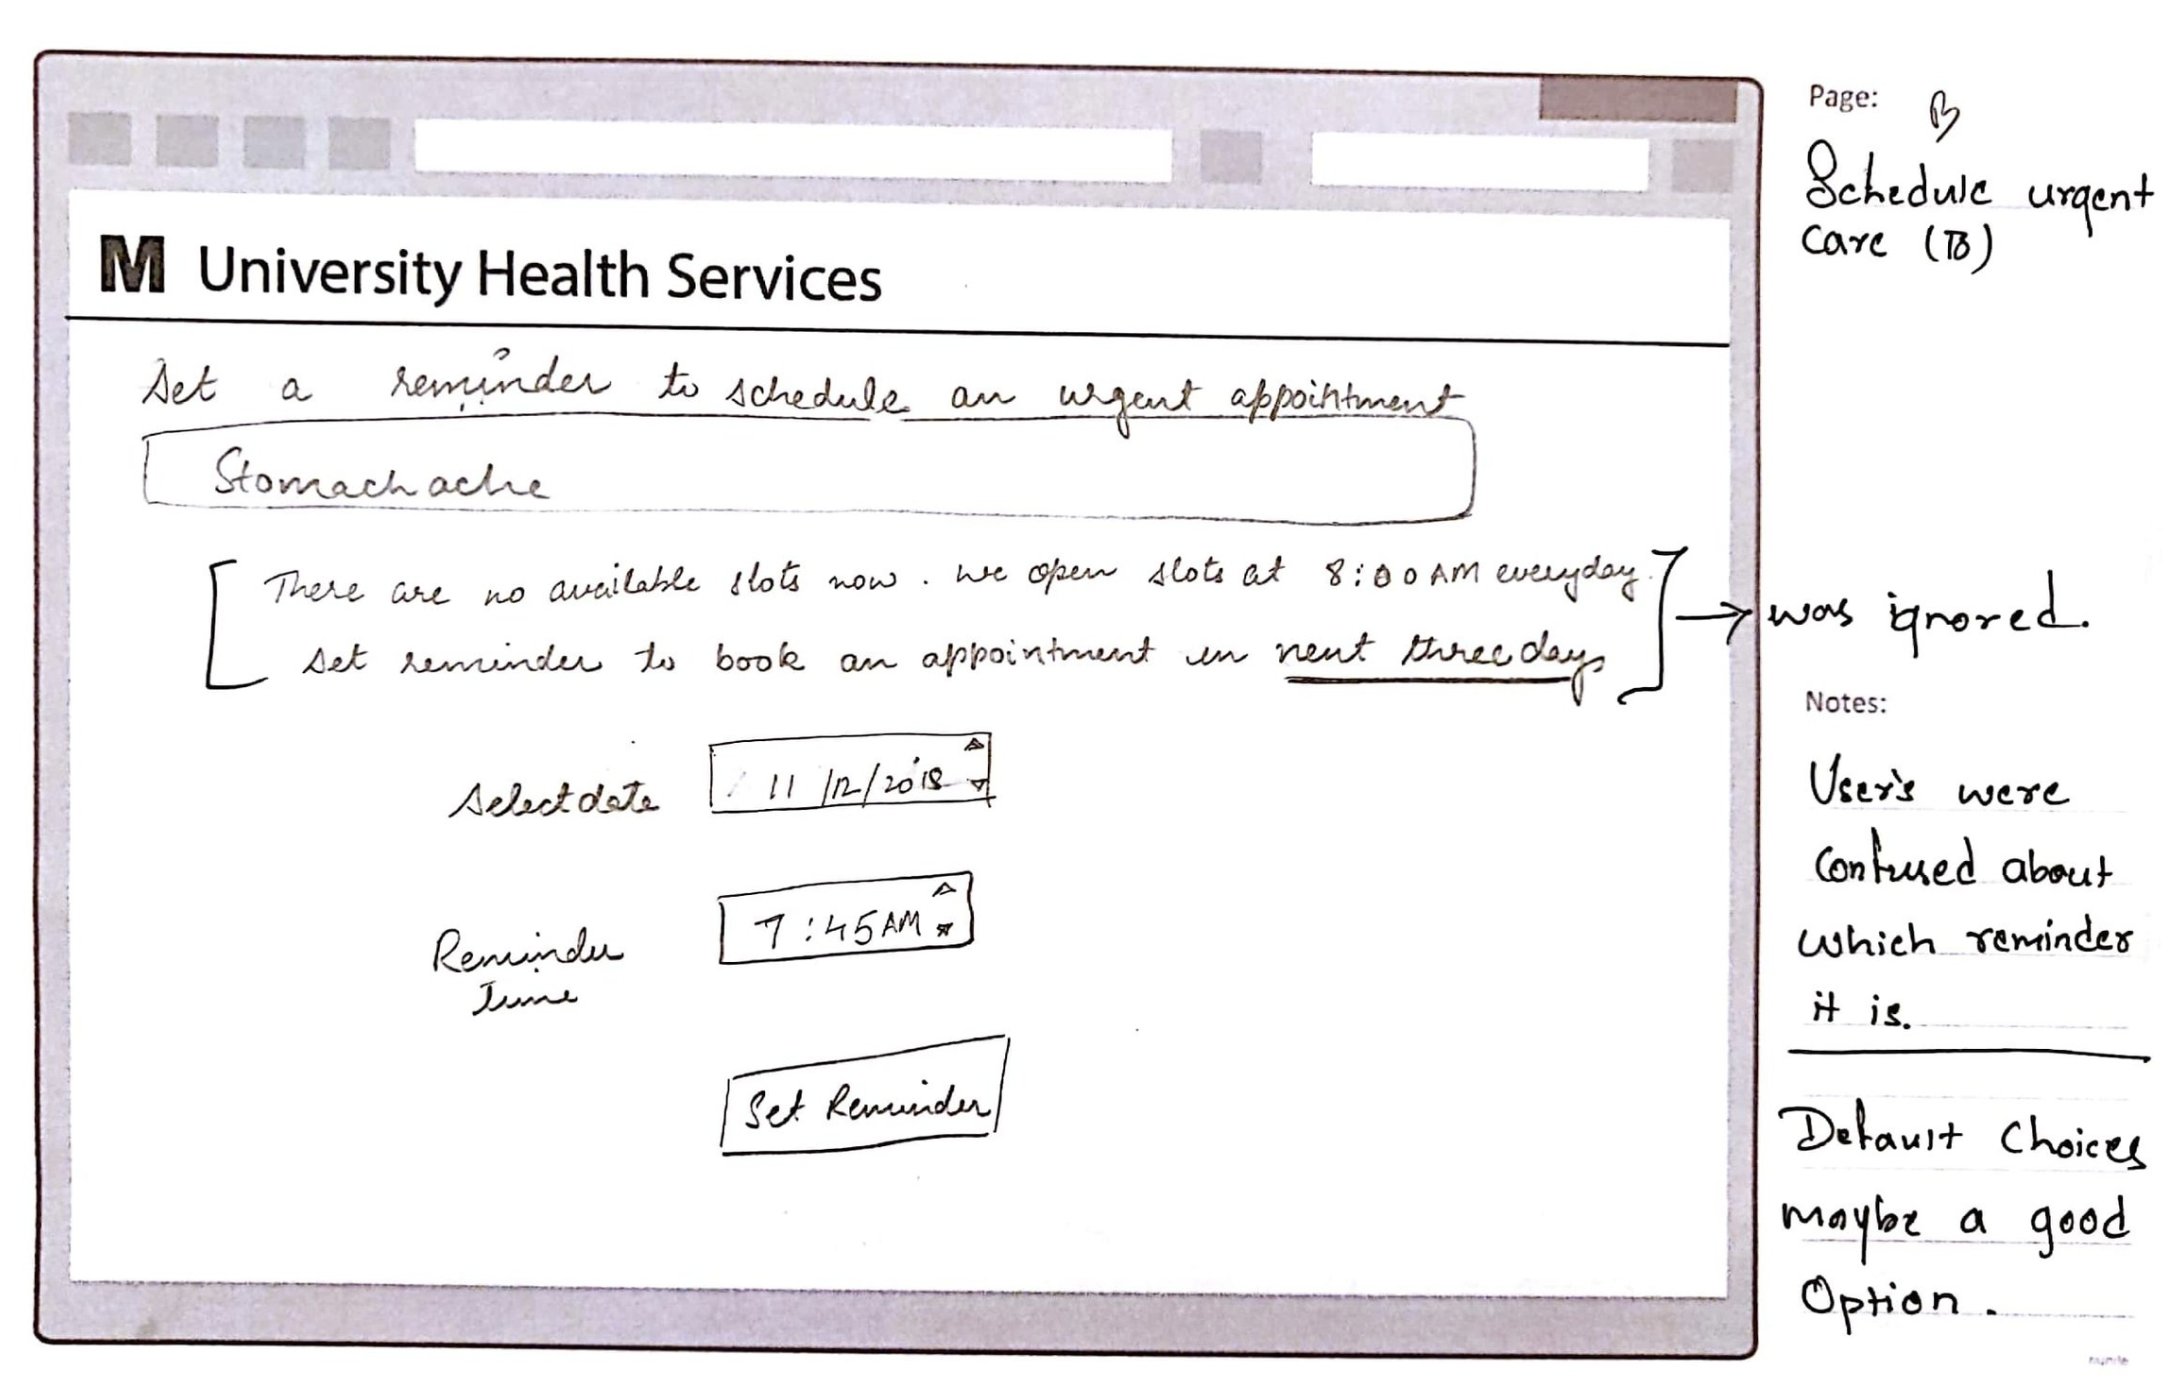 Page: B
Schedule urgent
care (B)
M University Health Services
Set a reminder to schedule an urgent appointment
Stomach ache
There are no available slots now. we open slots at 8:00 AM everyday.
Set reminder to book an appointment in next three days
→ was ignored.
Select date 11/12/2018
Reminder
Time
7:45 AM
Set Reminder
Notes:
User's were
confused about
which reminder
it is.
Default Choices
maybe a good
Option.